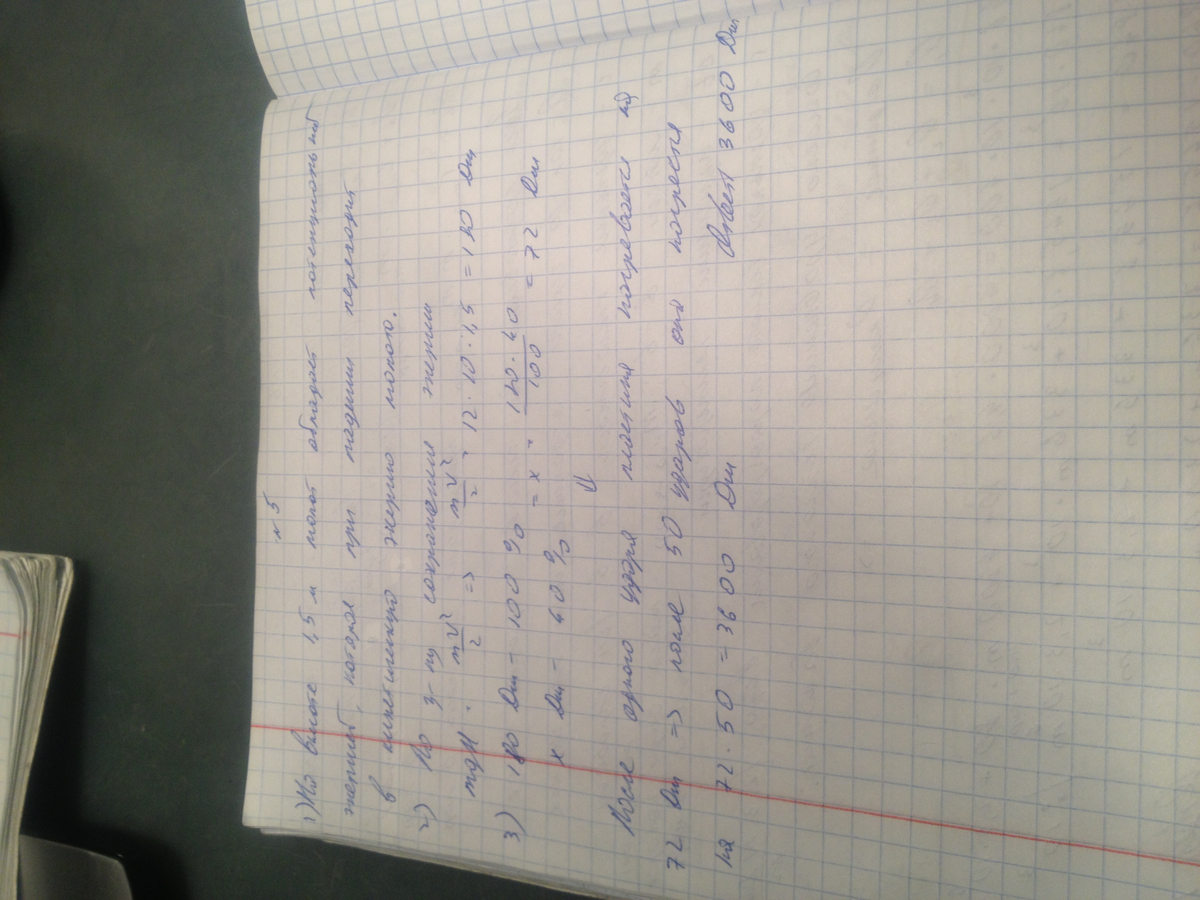 № 5
1) На высоте 1,5 м молот обладает потенциальной
энергией, которая при падении переходит
в кинетическую энергию молота.
2) По З-ну сохранения энергии
mgH = mV²/2 => mV²/2 = 12 · 10 · 1,5 = 180 Дж
3) 180 Дж - 100 % = x = 180 · 40 / 100 = 72 Дж
x Дж - 40 %
⇓
После одного удара пластина нагревается на
72 Дж => после 50 ударов она нагреется
на 72 · 50 = 3600 Дж Ответ 3600 Дж